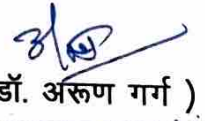 डॉ. अरूण गर्ग )